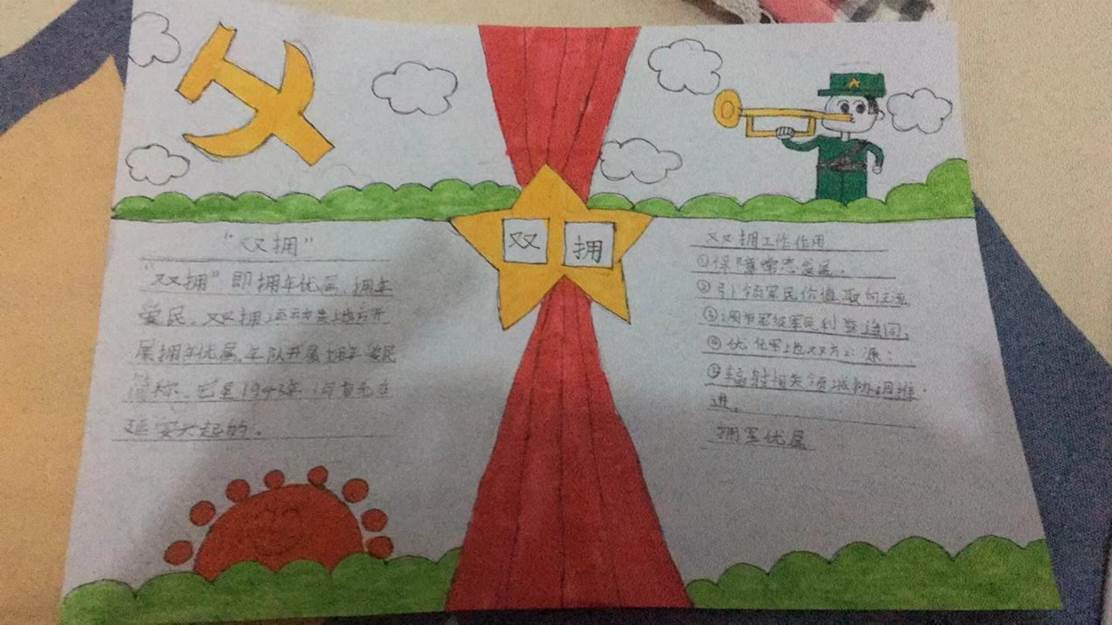 双 拥
"双拥"
"双拥"即拥军优属、拥军
爱民。双拥运动是地方开
展拥军优属,军队开展拥军爱民
简称。它是1943年1月首先在
延安兴起的。
双拥工作作用
①保障常态发展:
②引领军民价值取向主流
③调节军政军民利益连同;
④优化军地双方资源:
⑤辐射相关领域协调推
进。
拥军优属